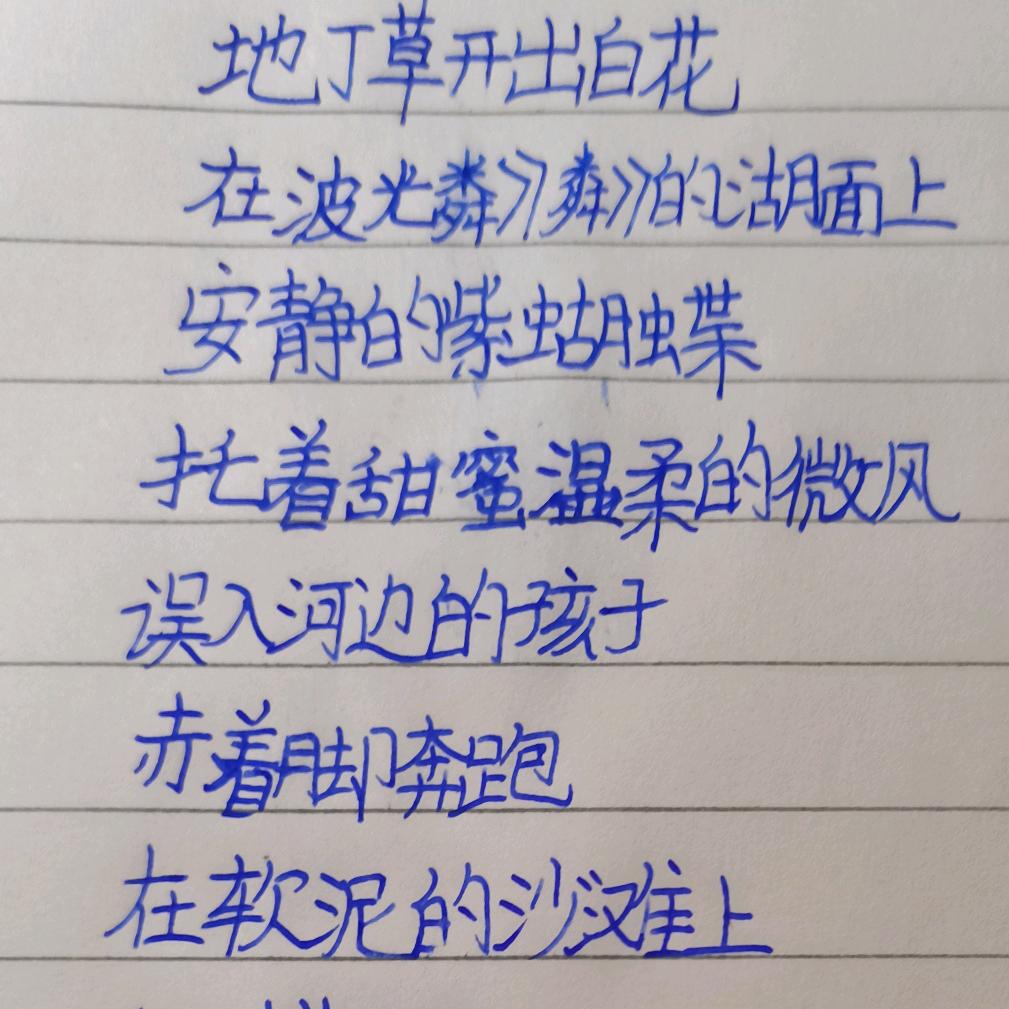 地丁草开出白花
在波光粼粼的湖面上
安静的紫蝴蝶
托着甜蜜温柔的微风
误入河边的孩子
赤着脚奔跑
在软泥的沙滩上